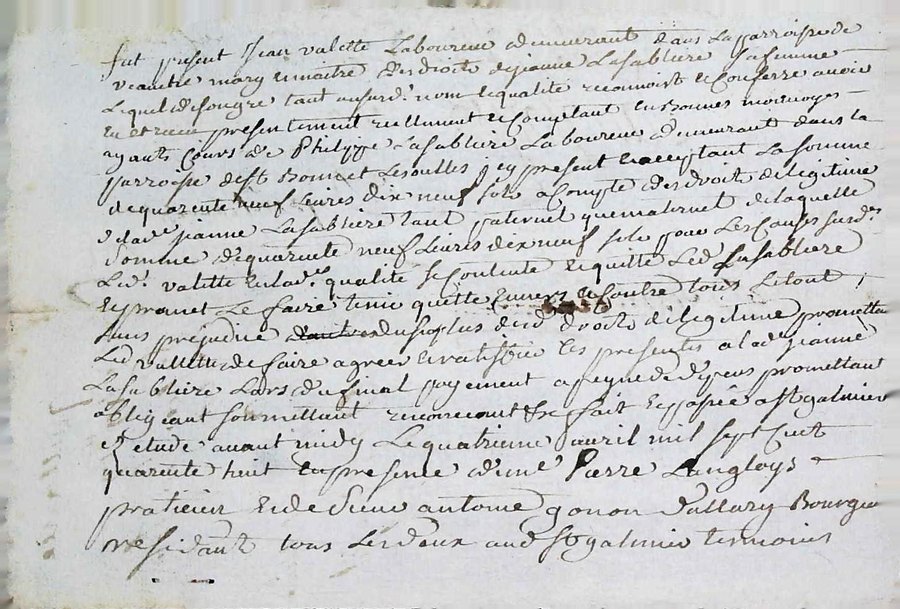 fut present Jean valette Laboureur demeurant dans La parroisse de
veauche mary et maitre des droits de jeanne Lasabliere sa femme
Lequel de son gre tant aud. nom et qualité reconnoist et confesse avoir
eu et receu presentement reellement et comptant en bonnes monnoyes
ayants Cours de Philippe Lasabliere Laboureur demeurant dans la
parroisse de St Bonnet Les oulles icy present et acceptant La somme
de quarente neuf Livres dix neuf sols a Compte des droit de legitime
de lad.e jeanne Lasabliere tant paternel que maternel de laquelle
somme de quarente neuf Livres dix neuf sols pour Les causes susd.es
Led. valette en lad. qualité se contente et quitte Led. Lasabliere
et promet Le faire tenir quitte Envers et Contre tous Le tout
sans prejudice du surplus desd. droits de legitime promettant
Led. vallette de faire agreer et ratiffier Les presentes a lad.e jeanne
Lasabliere Lors du final payement a peyne de depens promettant
obligeant soumettant renonceant &c fait et passé a St galmier
et etude avant midy Le quatrieme avril mil sept cent
quarente huit en presence de me Pierre Langloys
praticien et de Sieur antoine gonon Dallary Bourgeois
residant tous Les deux aud. St galmier temoins